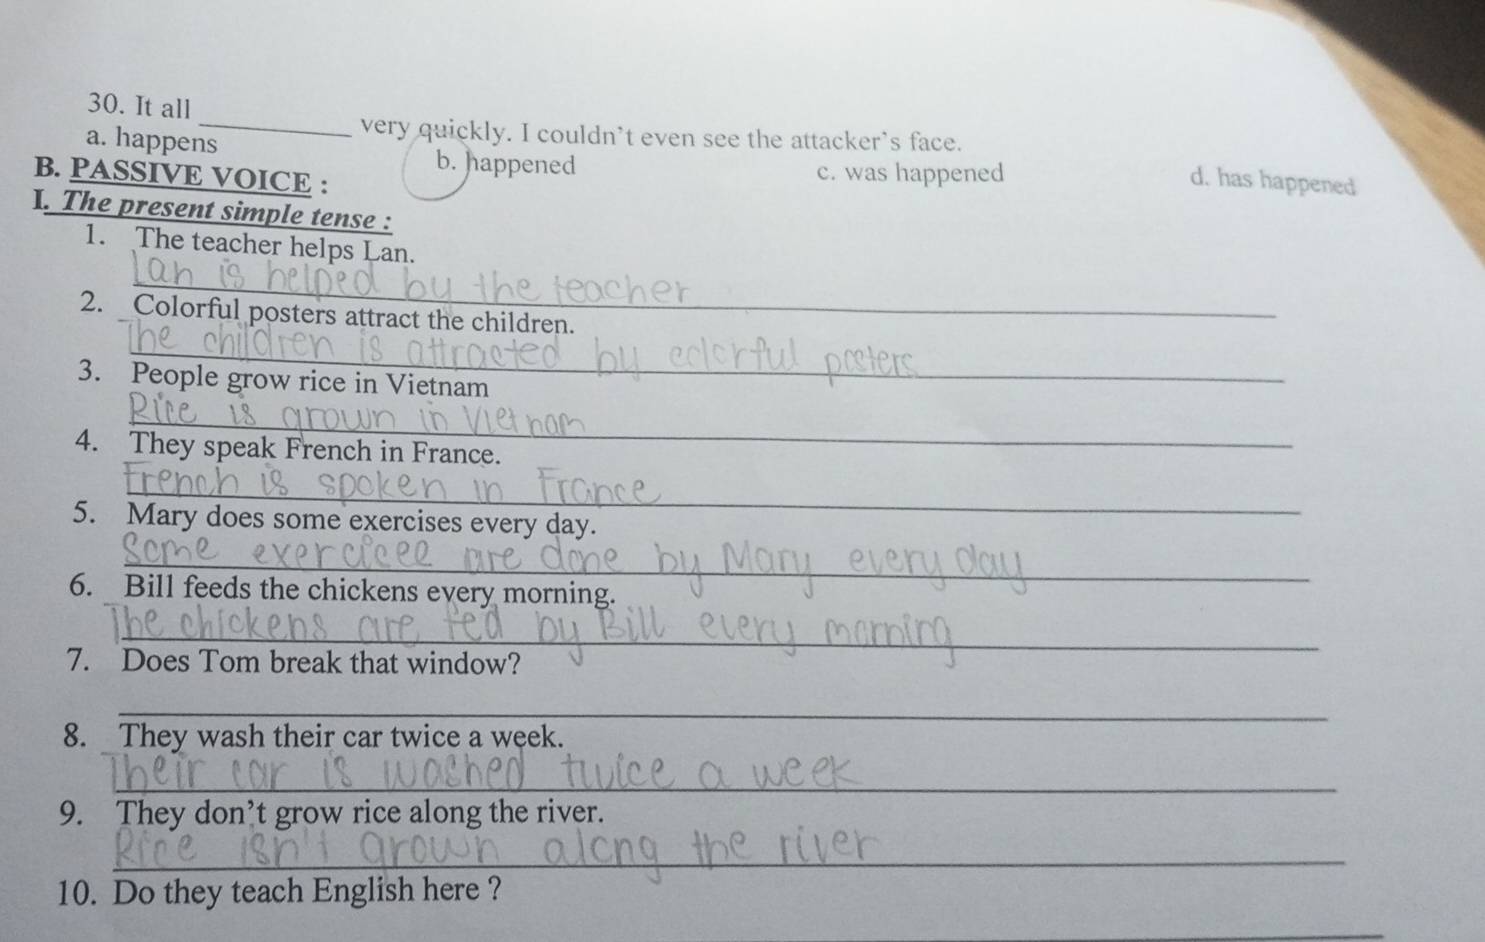 30. It all __________ very quickly. I couldn't even see the attacker's face.
a. happens b. happened c. was happened d. has happened
B. PASSIVE VOICE :
I. The present simple tense :
1. The teacher helps Lan.
Lan is helped by the teacher
2. Colorful posters attract the children.
The children is attracted by colorful posters
3. People grow rice in Vietnam
Rice is grown in Vietnam
4. They speak French in France.
French is spoken in France
5. Mary does some exercises every day.
Some exercicee are done by Mary every day
6. Bill feeds the chickens every morning.
The chickens are fed by Bill every morning
7. Does Tom break that window?
8. They wash their car twice a week.
Their car is washed twice a week
9. They don't grow rice along the river.
Rice isn't grown along the river
10. Do they teach English here ?